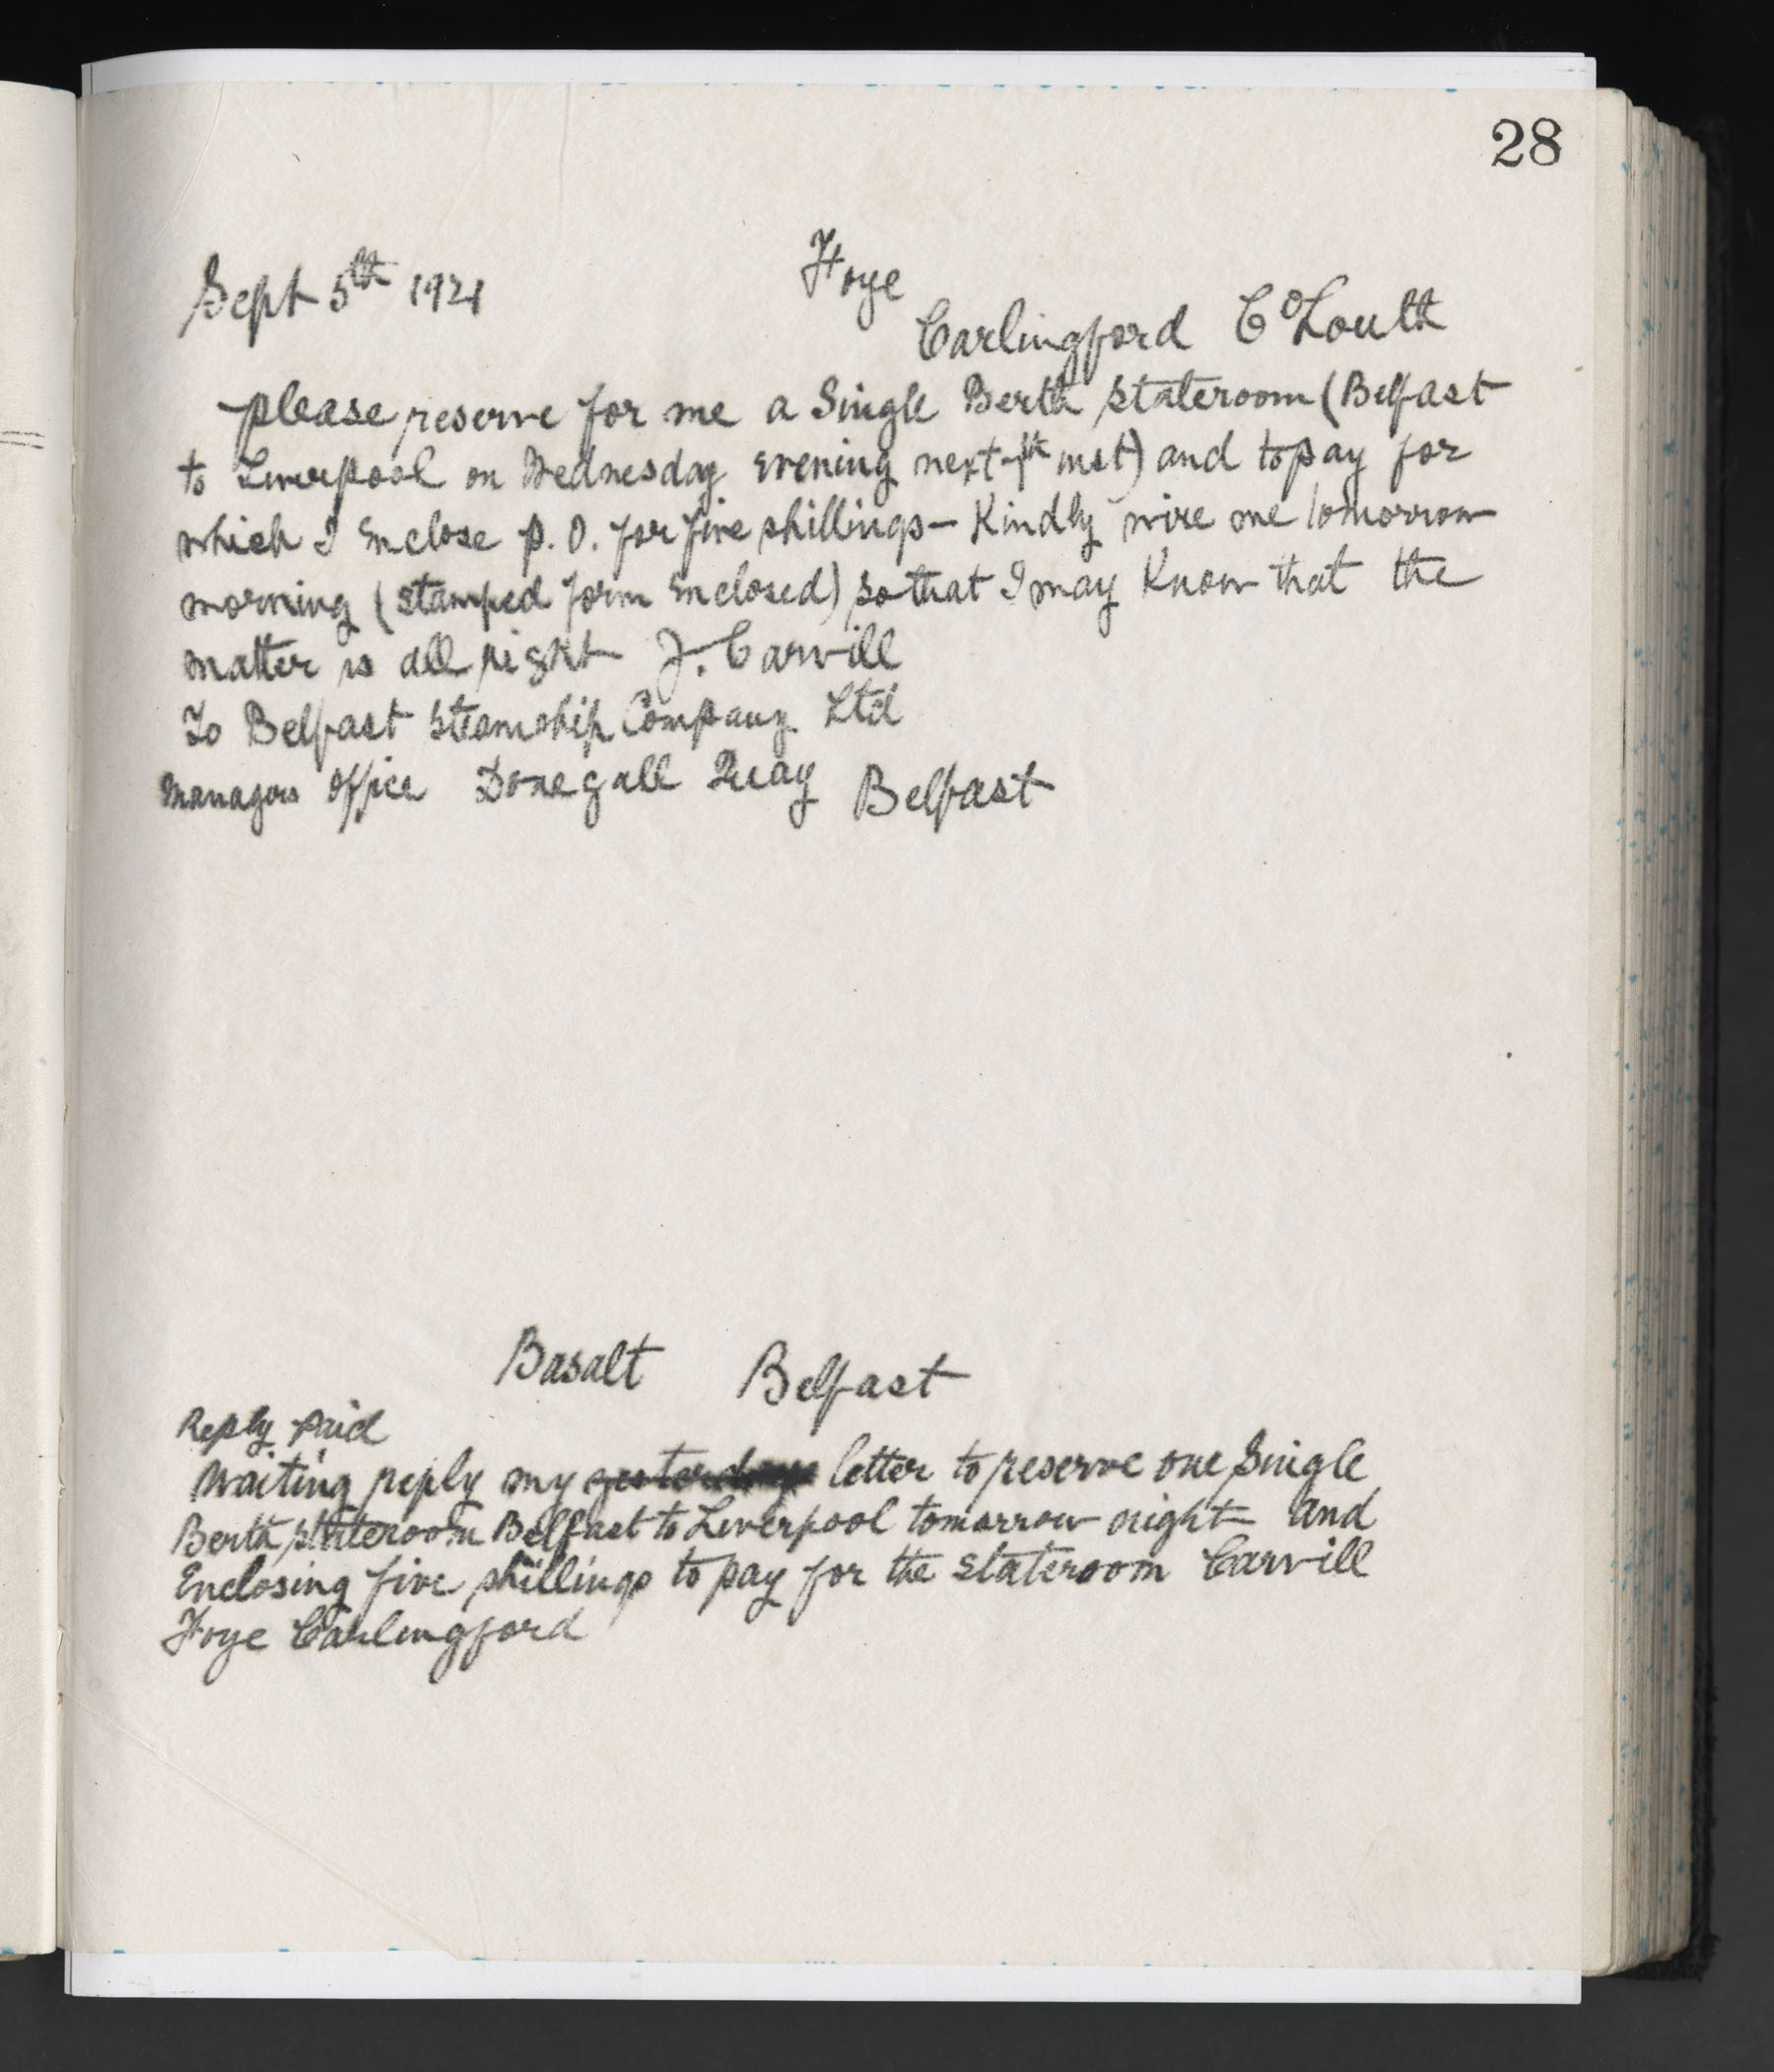 28
Sept 5th 1921
Foye
Carlingford Co Louth
please reserve for me a Single Berth stateroom (Belfast
to Liverpool on Wednesday Evening next 7th inst) and to pay for
which I Enclose P.O. for five shillings - Kindly wire me tomorrow
morning (stamped form Enclosed) so that I may Know that the
matter is all right J. Carvill
To Belfast Steamship Company Ltd
Managers Office Donegall Quay Belfast
Basalt Belfast
Reply Paid
Waiting reply my yesterdays letter to reserve one Single
Berth stateroom Belfast to Liverpool tomorrow night and
Enclosing five shillings to pay for the stateroom Carvill
Foye Carlingford